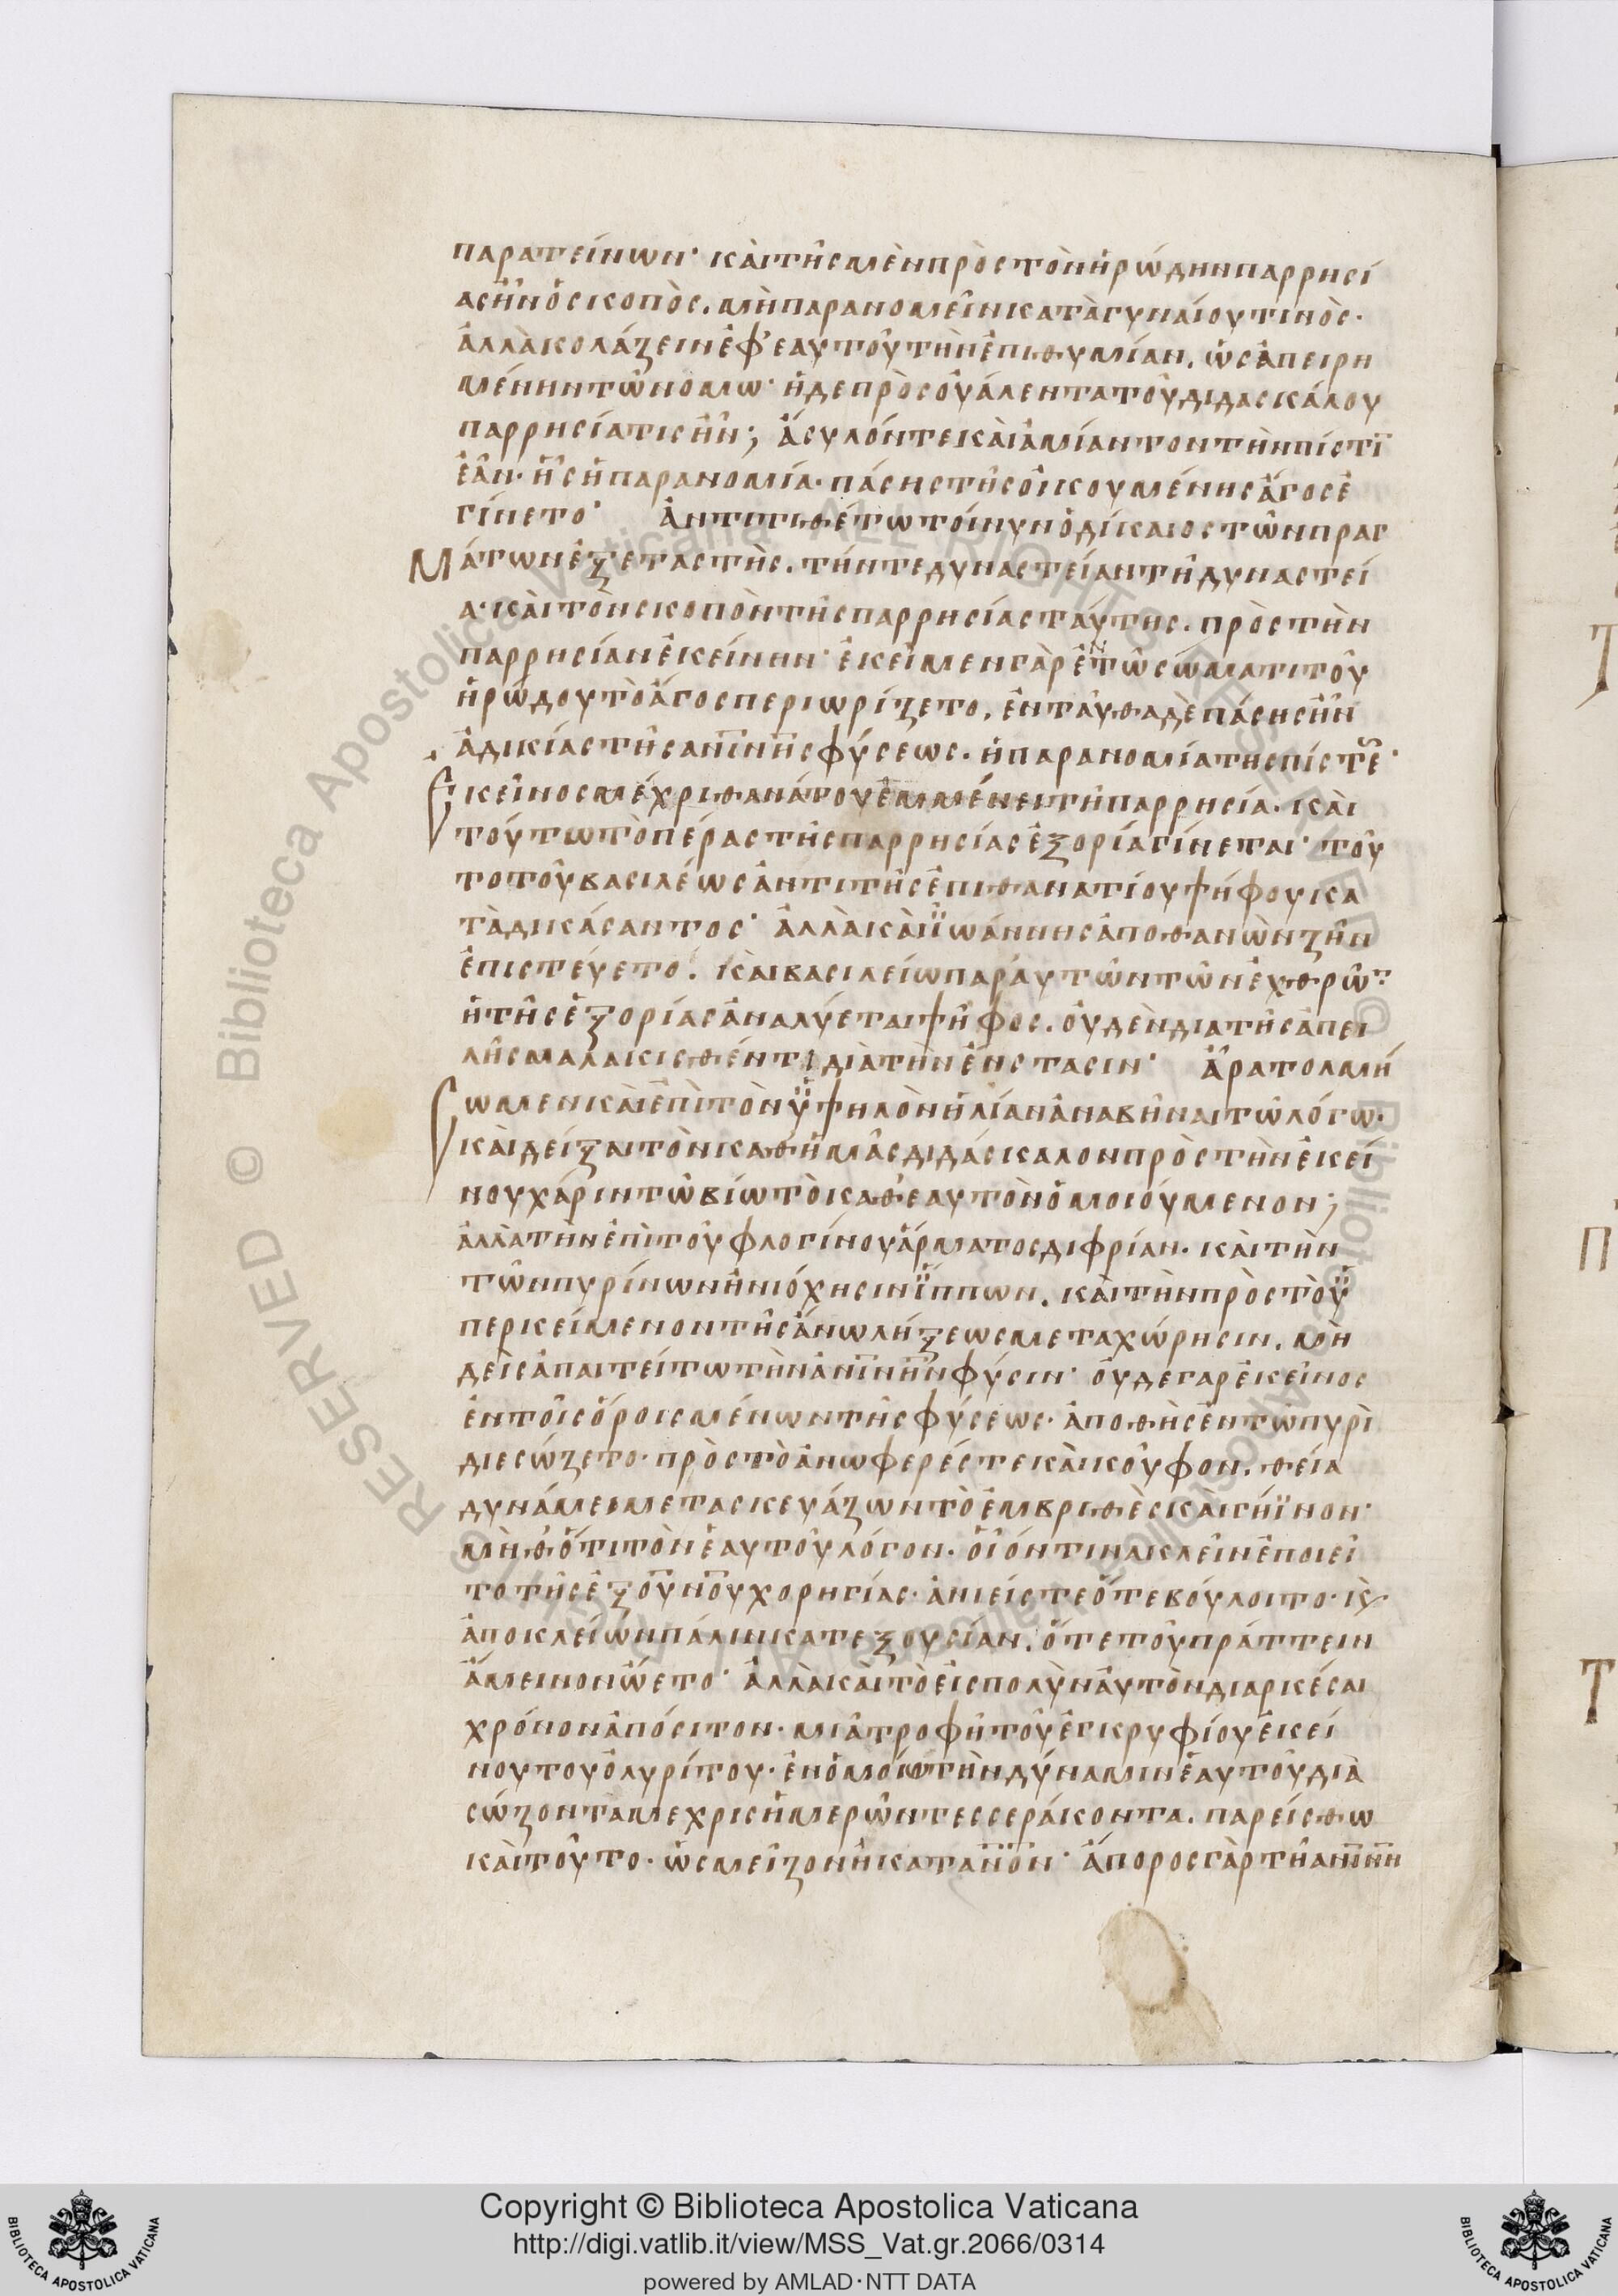 παρατείνων· καὶ τῆς μὲν πρὸς τὸν ἡρώδην παρρησί
ας ἦν ὁ σκοπὸς. μὴ παρανομεῖν κατὰ γυναίου τινὸς·
ἀλλὰ κολάζειν ἐφ' ἑαυτοῦ τὴν ἐπιθυμίαν. ὡς ἀπειρη
μένην τῶ νόμω· ἡ δε πρὸς οὐάλεντα τοῦ διδασκάλου
παρρησία τίς ἦν; ἄσυλόν τε καὶ ἀμίαντον τὴν πίστϊ
ἐᾶν· ἧς ἡ παρανομία· πάσης τῆς οἰκουμένης ἄγος ἐ
γίνετο· ἀντιτιθέτω τοίνυν ὁ δίκαιος τῶν πραγ
μάτων ἐξεταστὴς. τήν τε δυναστείαν τῆ δυναστεί
α· καὶ τὸν σκοπὸν τῆς παρρησίας ταύτης. πρὸς τὴν
παρρησίαν ἐκείνην· ἐκεῖ μεν γὰρ ἐν τῶ σώματι τοῦ
ἡρώδου τὸ ἄγος περιωρίζετο. ἐνταῦθα δὲ πάσης ἦν
ἀδικίας τῆς ανΐνης φύσεως. ἡ παρανομία τῆς πίστε
ἐκεῖνος μέχρι θανάτου ἐμμένει τῆ παρρησία. καὶ
τούτω τὸ πέρας τῆς παρρησίας ἐξορία γίνεται· τοῦ
το τοῦ βασιλέως ἀντι τῆς ἐπιθανατίου ψήφου κα
τὰ δικάσαντος· ἀλλὰ καὶ ἰωάννης ἀποθανὼν ζῆν
ἐπιστεύετο. καὶ βασιλείω παρ' αὐτῶν τῶν ἐχθρῶ
ἡ τῆς ἐξορίας ἀναλύεται ψῆφος. οὐδὲν δια τῆς ἀπει
λῆς μαλακισθέντι δια τὴν ἔνστασιν· ἆρα τολμή
σωμεν καὶ ἐπὶ τὸν ὑψηλὸν ἠλίαν ἀναβῆναι τῶ λόγω.
καὶ δεῖξαι τὸν καθ' ἡμᾶς διδάσκαλον πρὸς τὴν ἐκεί
νου χάριν τῶ βίω τὸ καθ' ἑαυτὸν ὁμοιούμενον;
ἀλλὰ τὴν ἐπὶ τοῦ φλογίνου ἅρματος διφρίαν. καὶ τὴν
τῶν πυρίνων ἡνιόχησιν ἵππων. καὶ τὴν πρὸς τὸ ὑ
περκείμενον τῆς ἄνω λήξεως μεταχώρησιν. μὴ
δεὶς ἀπαιτείτω τὴν ἀνΐνην φύσιν· οὐδε γαρ ἐκεῖνος
ἐν τοῖς ὅροις μένων τῆς φύσεως· ἀπαθὴς ἐν τῶ πυρὶ
διεσώζετο· πρὸς τὸ ἀνωφερές τε καὶ κοῦφον. θεία
δυνάμει μετασκευάζων τὸ ἐμβριθὲς καὶ γήϊνον·
μὴ θ' ὅτι τὸν ἑαυτοῦ λόγον. οἷόν τινα κλεῖν ἐποιεῖ
το τῆς ἐξ οὐνοῦ χορηγίας· ἀνιείς τε ὅτε βούλοιτο· κ
ἀποκλείων πάλιν κατεξουσίαν. ὅτε τοῦ πράττειν
ἄμεινον ᾤετο· ἀλλὰ καὶ τὸ εἰς πολὺν αὐτὸν διαρκέσαι
χρόνον ἀπόσιτον· μιᾶ τροφῆ τοῦ ἐγκρυφίου ἐκεί
νου του ὀλυρίτου· ἐν ὁμοίω τὴν δύναμιν ἑαυτοῦ δια
σώζοντα μεχρις ἡμερῶν τεσσεράκοντα. παρείσθω
καὶ τοῦτο· ὡς μεῖζον ἢ κατα ἄνον· ἄπορος γὰρ τῆ ανΐνη
Copyright © Biblioteca Apostolica Vaticana
http://digi.vatlib.it/view/MSS_Vat.gr.2066/0314
powered by AMLAD·NTT DATA